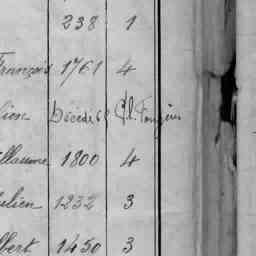 238 1
François 1761 4
lien Décédé
illaume 1800 4
ulien 1232 3
lbert 1450 3